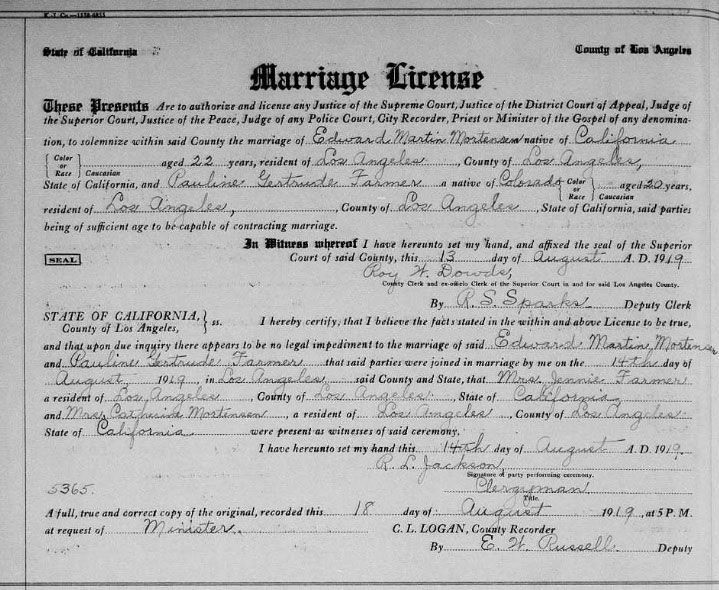 State of California County of Los Angeles
Marriage License
These Presents Are to authorize and license any Justice of the Supreme Court, Justice of the District Court of Appeal, Judge of
the Superior Court, Justice of the Peace, Judge of any Police Court, City Recorder, Priest or Minister of the Gospel of any denomina-
tion, to solemnize within said County the marriage of Edward Martin Mortensen native of California
{ Color or Race } Caucasian aged 22 years, resident of Los Angeles, County of Los Angeles,
State of California, and Pauline Gertrude Farmer a native of Colorado { Color or Race } Caucasian aged 20 years,
resident of Los Angeles, County of Los Angeles, State of California, said parties
being of sufficient age to be capable of contracting marriage.
In Witness whereof I have hereunto set my hand, and affixed the seal of the Superior
SEAL Court of said County, this 13 day of August A. D. 1919
Roy W. Dowds,
County Clerk and ex-officio Clerk of the Superior Court in and for said Los Angeles County.
By R. S. Sparks Deputy Clerk
STATE OF CALIFORNIA, } ss. I hereby certify, that I believe the facts stated in the within and above License to be true,
County of Los Angeles,
and that upon due inquiry there appears to be no legal impediment to the marriage of said Edward Martin Mortensen
and Pauline Gertrude Farmer that said parties were joined in marriage by me on the 14th day of
August, 1919, in Los Angeles, said County and State, that Mrs. Jennie Farmer
a resident of Los Angeles, County of Los Angeles, State of California
and Mrs. Catherine Mortensen, a resident of Los Angeles, County of Los Angeles
State of California were present as witnesses of said ceremony.
I have hereunto set my hand this 14th day of August A. D. 1919.
R. L. Jackson
Signature of party performing ceremony.
5365. Clergyman
Title.
A full, true and correct copy of the original, recorded this 18 day of August 1919, at 5 P. M.
at request of Minister. C. L. LOGAN, County Recorder
By E. W. Russell Deputy